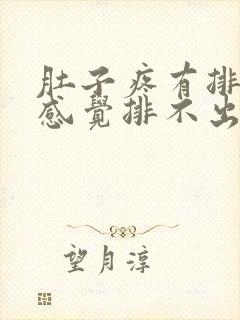 肚子疼有排
感覺排不出
望月淳